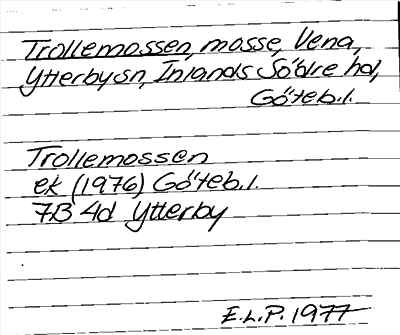 Trollemossen, mosse, Vena,
Ytterby sn, Inlands Södre hd,
Göteb. l.
Trollemossen
ek (1976) Göteb. l.
7B 4d Ytterby
E.L.P. 1977